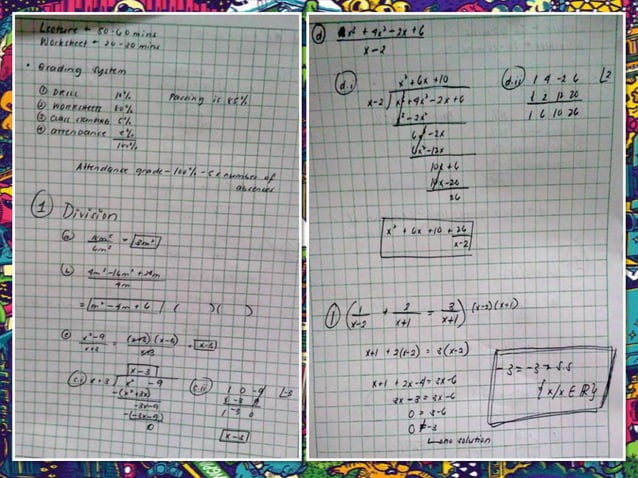 Lecture - 50-60 mins
Worksheet - 20-30 mins
• Grading System
① Drill 10%
② Worksheets 80%
③ Class 5%
④ attendance 5%
100%
Passing is 85%
Attendance grade - 100% - 5 x number of
absences
① Division
ⓐ 6m² = 3m²
ⓑ 4m³ - 16m² + 24m
4m
= m² - 4m + 6 ( )( )
ⓒ x² - 9 = (x+3)(x-3) = x-3
x+3 x+3
x-3
c.i x+3 x² - 9
-(x²+3x)
-3x-9
-(-3x-9)
0
c.ii 1 0 -9 -3
-3
1 -3 0
x-3
ⓓ x³ + 4x² - 2x + 6
x-2
d.i x² + 6x + 10
x-2 x³ + 4x² - 2x + 6
x³ - 2x²
6x² - 2x
6x² - 12x
10x + 6
10x - 20
26
x² + 6x + 10 + 26
x-2
d.ii 1 4 -2 6 2
2 12 20
1 6 10 26
① ( 1 + 2 = 3 ) (x-2)(x+1)
x-2 x+1 x+1
x+1 + 2(x-2) = 3(x-2)
x+1 + 2x-4 = 3x-6
3x-3 = 3x-6
0 = 3-6
0 ≠ -3
no solution
-3 = -3 = S.S
{x/x ∈ ℝ}